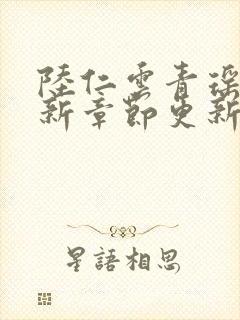 陸仁雲青瑤
新章節更新
星語相思